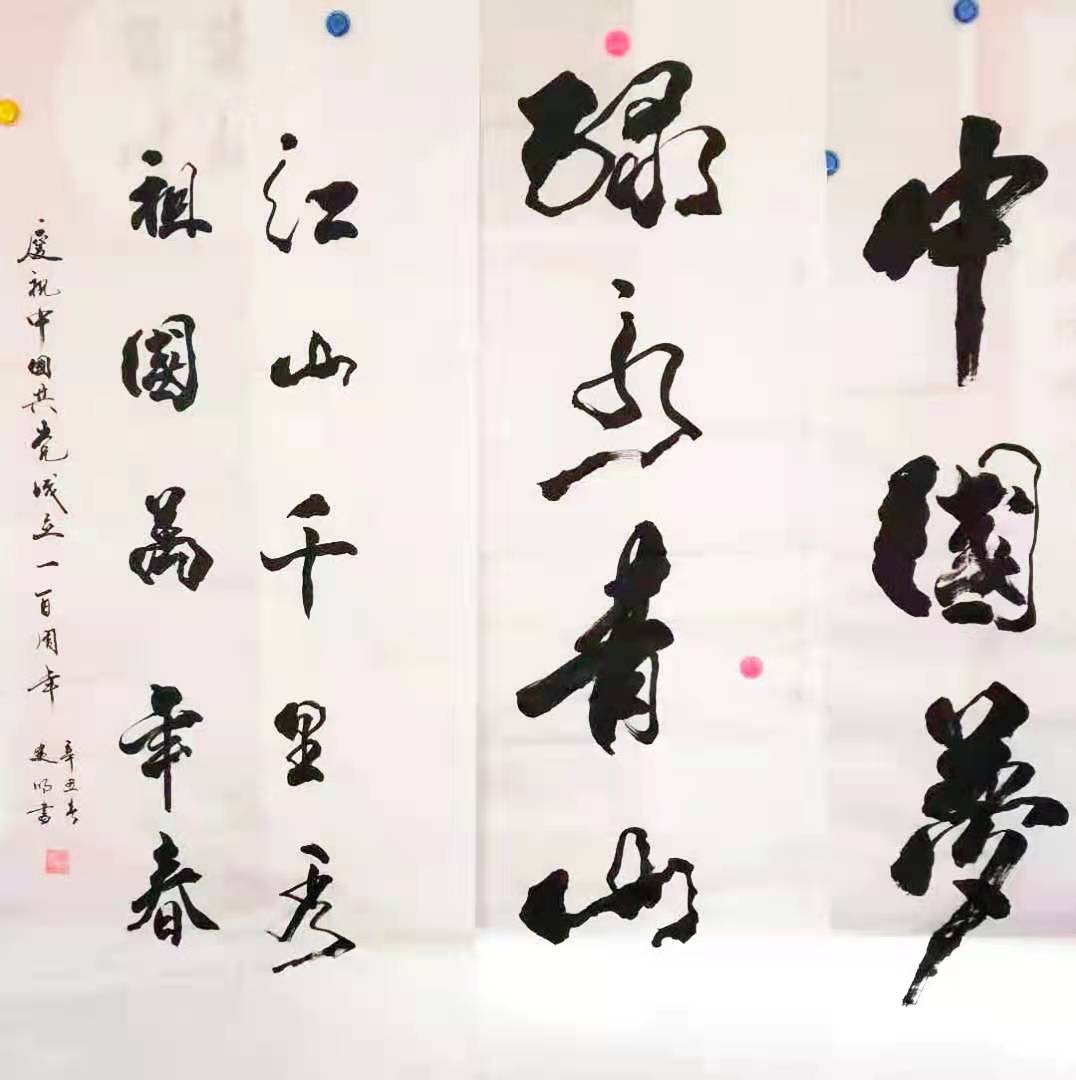 中國夢
绿遍青山
江山千里秀
祖國萬年春
慶祝中國共党成立一百周年
辛丑春
明書